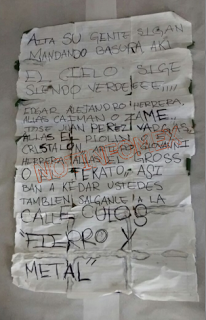 ALTA SU GENTE SIGAN
MANDANDO BASURA AKI
EL CIELO SIGE
SIENDO VERDEEEE,,,,
EDGAR ALEJANDRO HERRERA
ALIAS CAIMAN O
JOSE JUAN PEREZ VARGAS
ALIAS EL
CRISTALON, GIOVANNI
HERRERA ALIAS GROSS
O TEKATO, ASI
BAN A KEDAR USTEDES
TAMBIEN SALGANLE A LA
CALLE CULOS
"FIERRO Y
METAL"